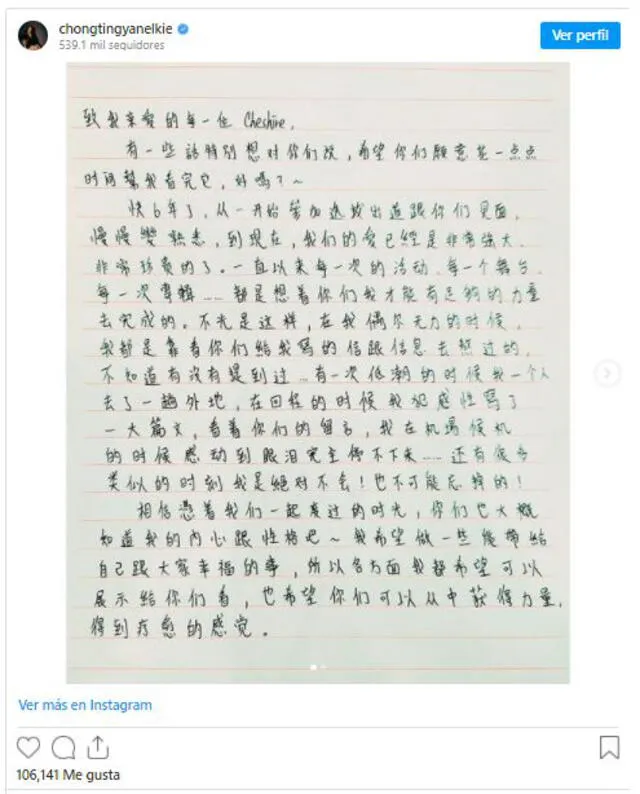 chongtingyanelkie
539.1 mil seguidores
Ver perfil
致我亲爱的每一位 Cheshire,
有一些話特别想对你们说,希望你们願意花一点点
时间幫我看完它,好嗎?~
快6年了,从一开始参加选拔出道跟你们见面,
慢慢變熟悉,到現在,我们的爱已經是非常強大
非常珍贵的了。一直以来每一次的活动、每一个舞台、
每一次專輯……都是想着你们我才能有足夠的力量
去完成的。不光是这样,在我偶尔无力的时候,
我都是靠着你们給我寫的信跟信息去熬过的,
不知道有沒有提到过…有一次低潮的时候我一个人
去了一趟外地,在回程的时候我犯感性寫了
一大篇文,看着你们的留言,我在机場候机
的时候感动到眼泪完全停不下来……还有很多
类似的时刻我是絕对不会!也不可能忘掉的!
相信憑着我们一起度过的时光,你们也大概
知道我的内心跟性格吧~我希望做一些能帶給
自己跟大家幸福的事,所以各方面我都希望可以
展示給你们看,也希望你们可以从中获得力量,
得到疗愈的感觉。
Ver más en Instagram
106,141 Me gusta